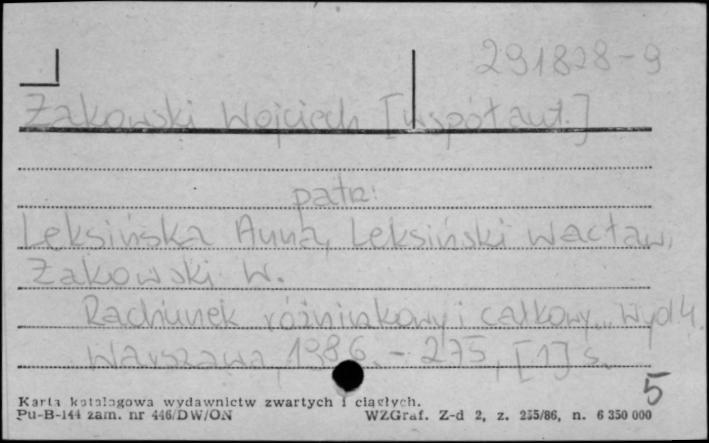 291828-9
Żakowski Wojciech [współaut.]
patrz:
Leksińska Anna, Leksiński Wacław,
Żakowski W.
Rachunek różniczkowy i całkowy... Wyd 4.
Warszawa, 1986. - 275, [1] s.
5
Karta katalogowa wydawnictw zwartych i ciągłych.
Pu-B-144 zam. nr 446/DW/ON WZGraf. Z-d 2, z. 255/86, n. 6 350 000